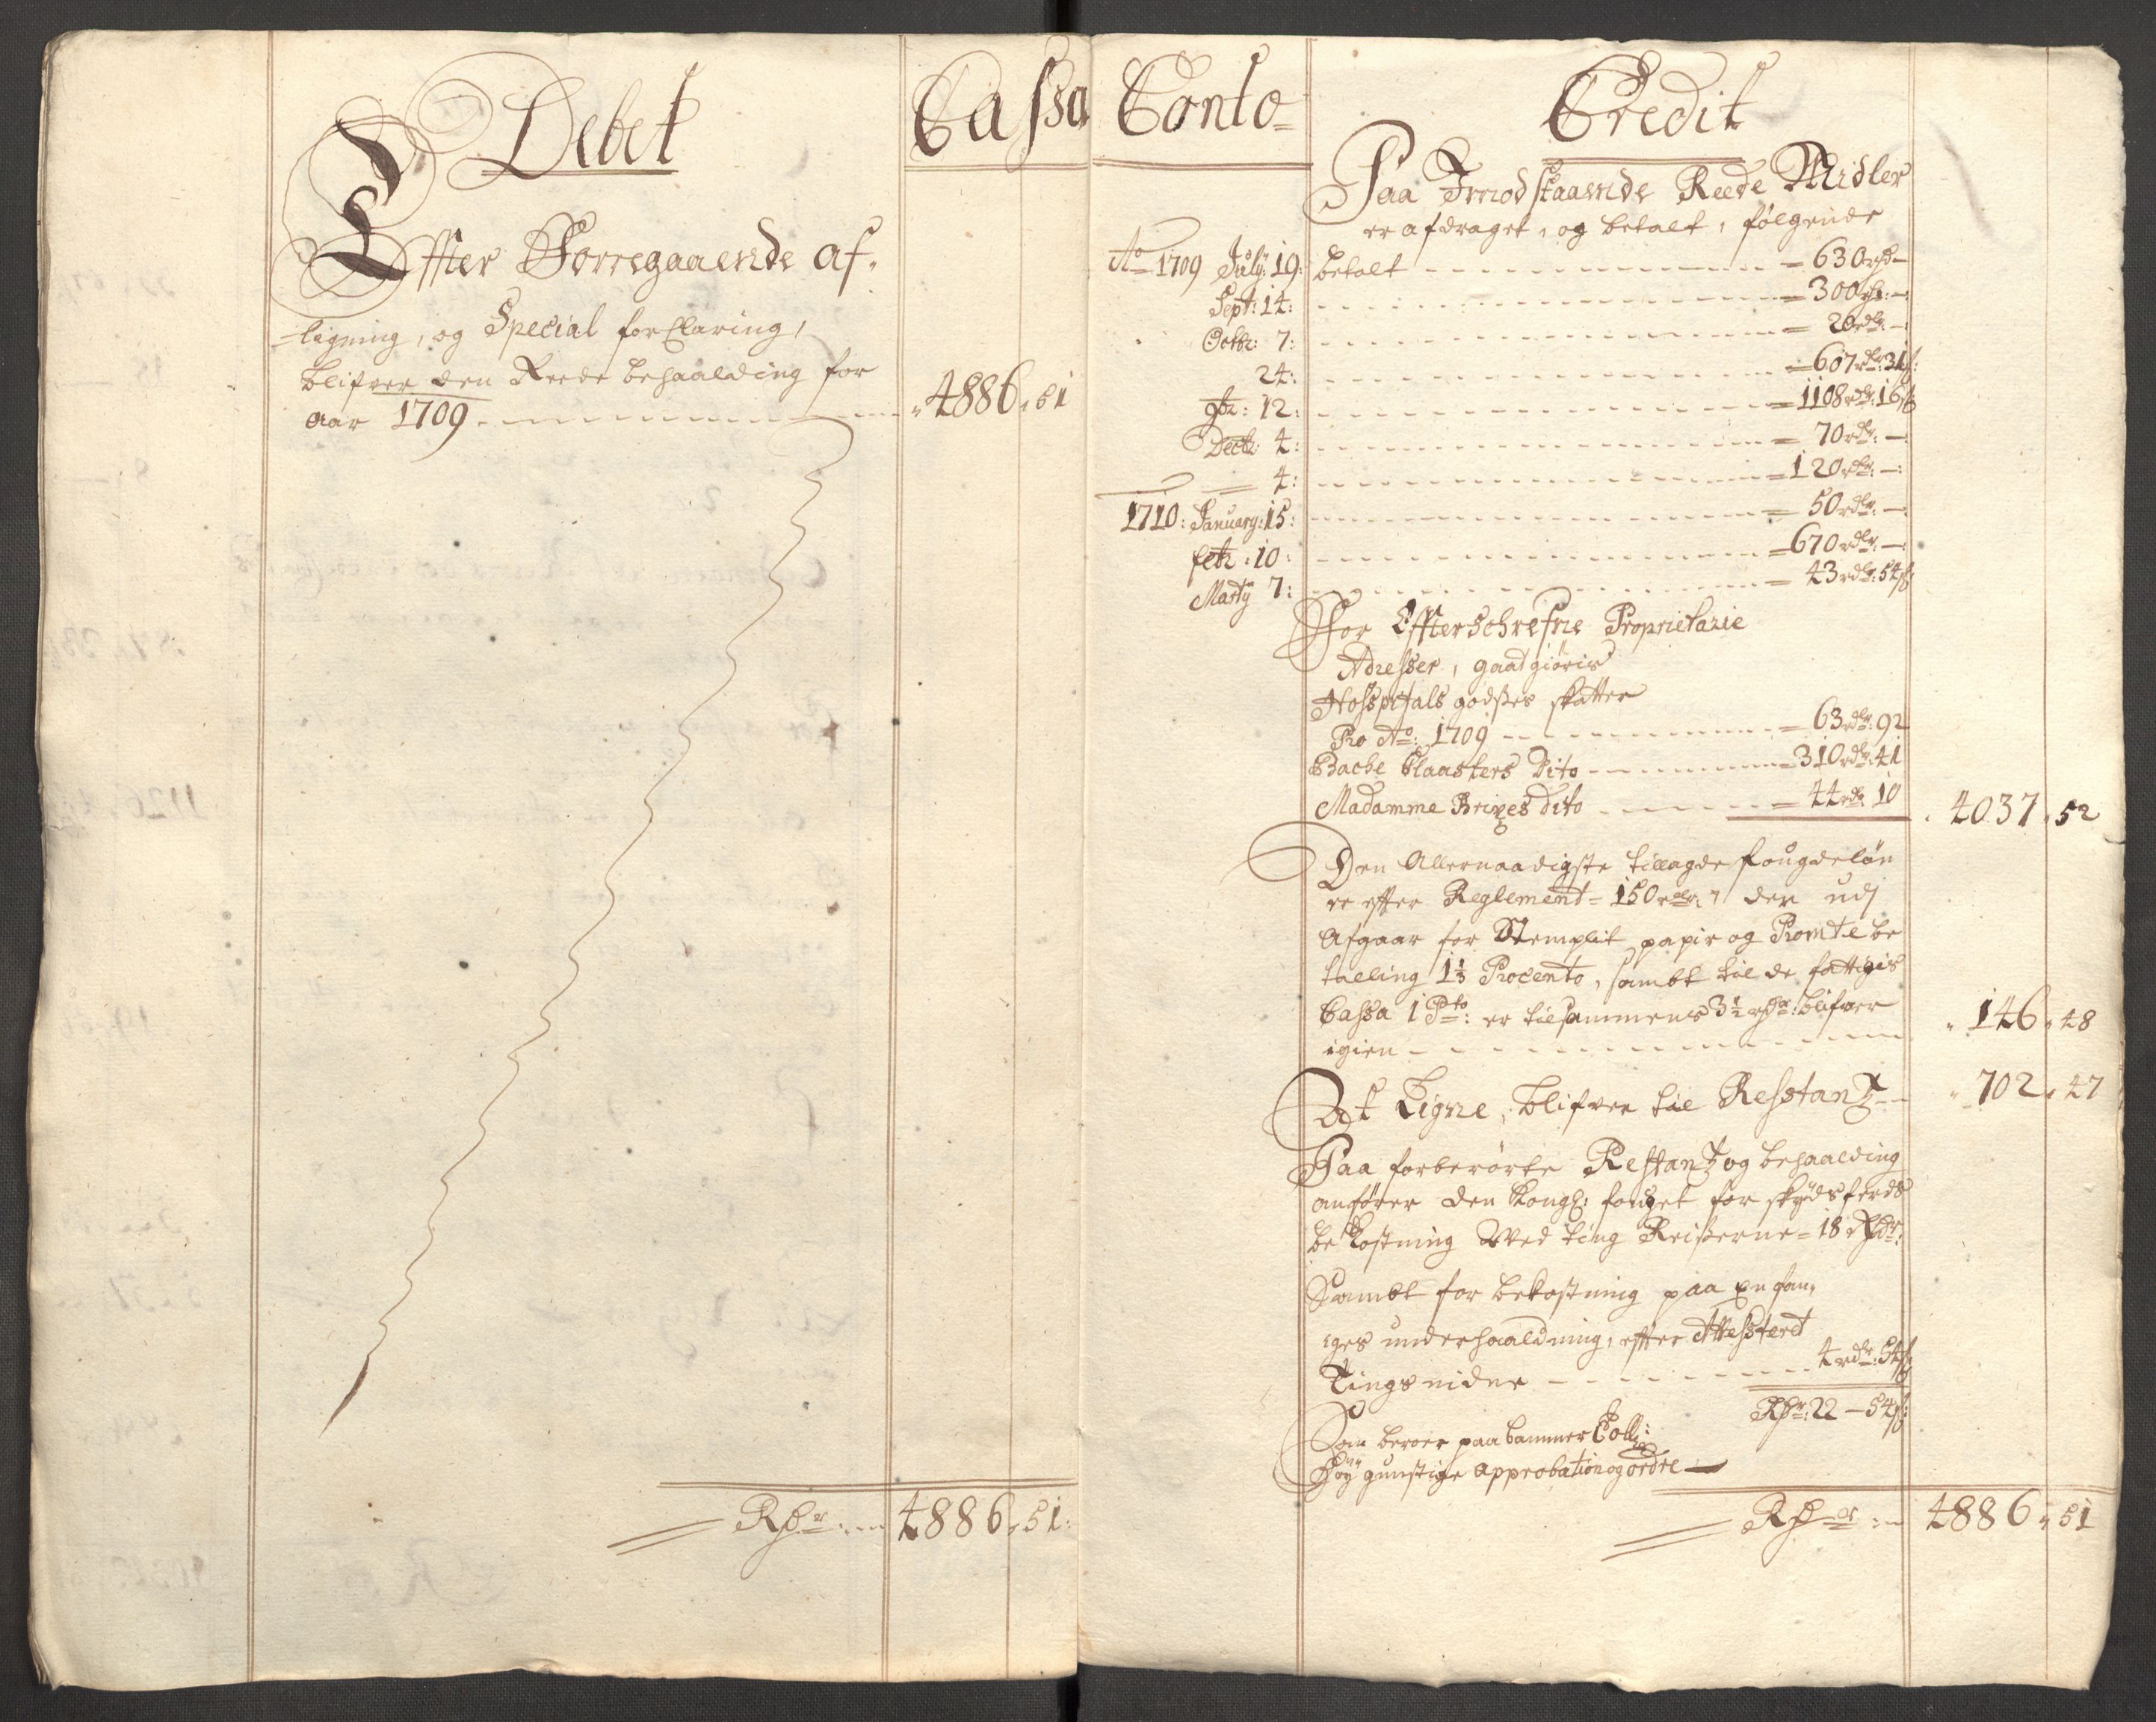 Debet
Cassa
Effter Forregaaende af-
ligning, og Special forklaring,
blifver den Reede behaalding for
aar 1709 4886 51
Rdr: 4886 51:
Conto
Credit
Paa Imodstaaende Reede Midler
er afdraget, og betalt, følgende
Ao 1709 July: 19: betalt = 630 rdr -
Sept: 14: = 300 rdr: -
Octbr: 7: = 20 rdr: -
24: = 607 rdr: 31 s:
9br: 12: = 1108 rdr: 16 s
Decbr: 4: = 70 rdr: -
4: = 120 rdr: -
1710: January: 15: = 50 rdr: -
febr: 10: = 670 rdr: -
Marty 7: = 43 rdr: 54 s
For Effterschrefne Proprietarie
Adresser, gaat giøris
Hosspitals godsses skatter
Pro Ao: 1709 = 63 rdr: 92
Bache Klaasters Dito = 310 rdr: 41
Madamme Brixes dito = 44 rdr: 10 4037 52
Den Allernaadigste tillagde fougdeløn
er effter Reglement = 150 rdr: der udj
Afgaar for Stemplit papir og Promte be
talling 1 1/3 Procento, sambt til de fattigis
Cassa 1 Pto: er tilsammens 3 1/2 rdr: blifver
igien 146 48
At Ligne, blifver til Resstantz 702 47
Paa forberørte Restantz og behaalding
anfører den Kongl: fouget for skydsferds
bekostning Ved ting Reisserne = 18 Rdr:
Sambt for bekostning paa en fan,
ges underhaaldning, effter Attesstered
Tingsvidne 4 rdr: 54 s
Rdr: 22 - 54 s:
Som beroer paa Cammer Coll:
høy gunstige approbation og ordre
Rdr: 4886 51